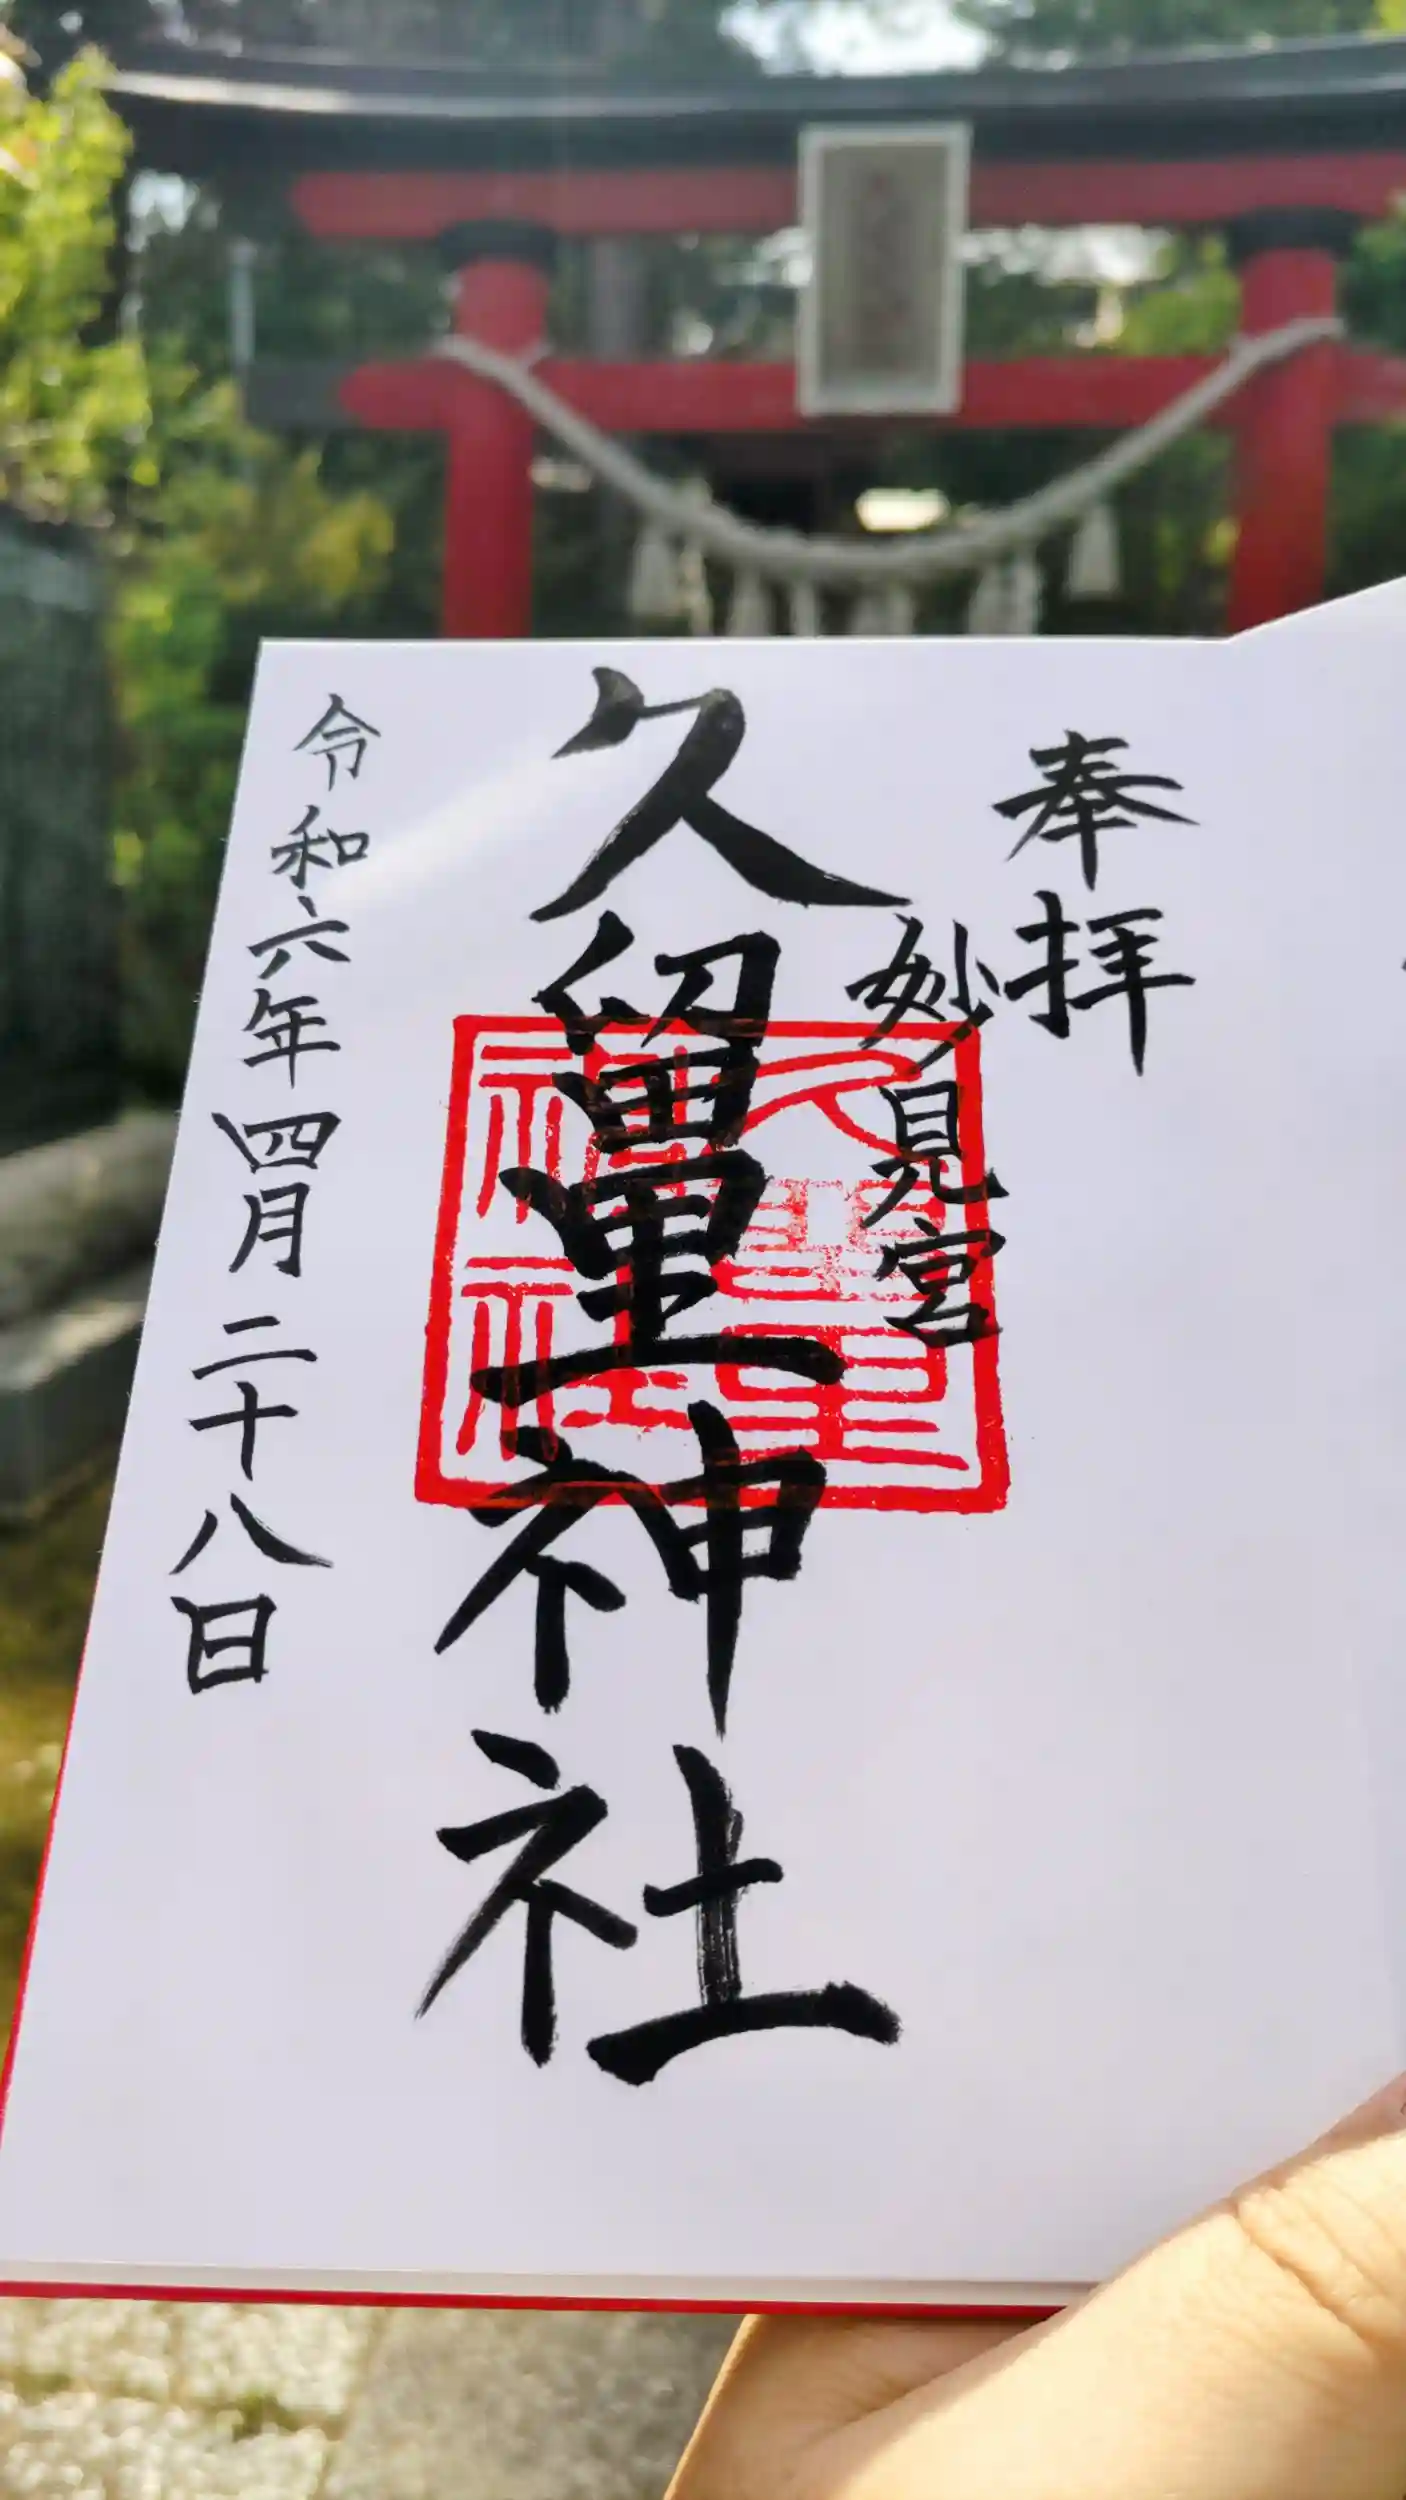 奉拝
妙見宮
久留里神社
久留里神社
令和六年四月二十八日